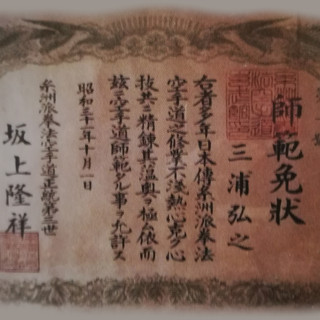 師範免状
三浦弘之
右者多年日本傳糸洲派拳法
空手道之修業不淺熱心克ク心
技共ニ精錬其蘊奥ヲ極ム依而
玆ニ空手道師範タル事ヲ允許ス
昭和三十二年十月一日
糸洲派拳法空手道正統第三世
坂上隆祥